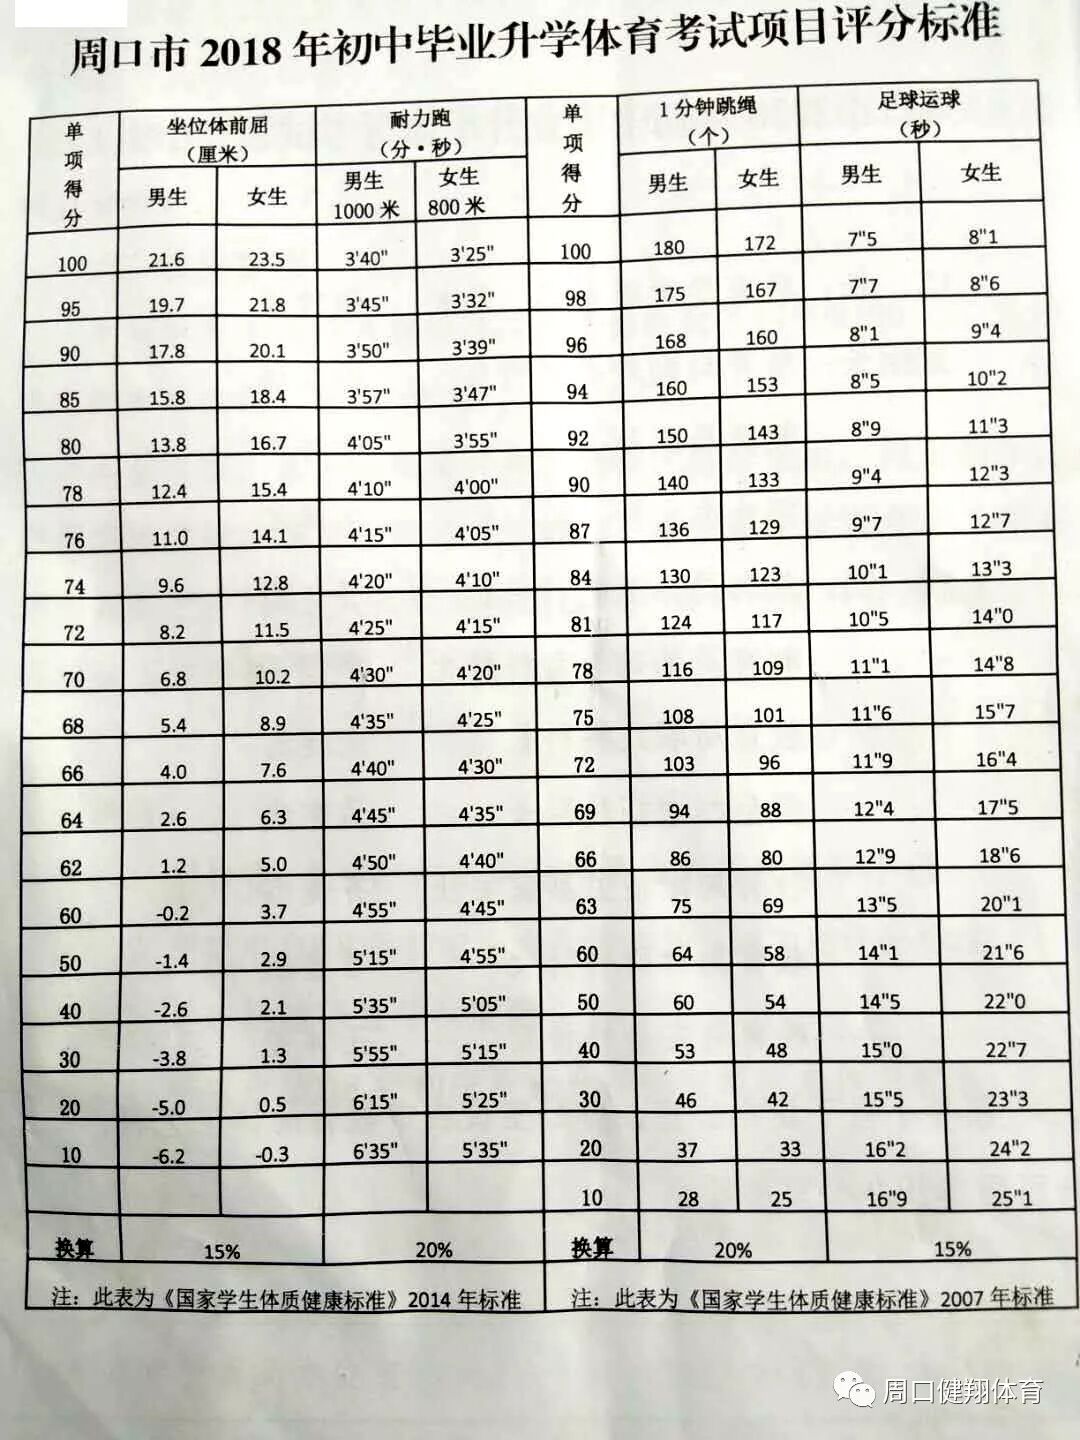 周口市 2018 年初中毕业升学体育考试项目评分标准
单项得分 坐位体前屈（厘米） 耐力跑（分·秒） 单项得分 1 分钟跳绳（个） 足球运球（秒）
男生 女生 男生 1000 米 女生 800 米 男生 女生 男生 女生
100 21.6 23.5 3'40" 3'25" 100 180 172 7"5 8"1
95 19.7 21.8 3'45" 3'32" 98 175 167 7"7 8"6
90 17.8 20.1 3'50" 3'39" 96 168 160 8"1 9"4
85 15.8 18.4 3'57" 3'47" 94 160 153 8"5 10"2
80 13.8 16.7 4'05" 3'55" 92 150 143 8"9 11"3
78 12.4 15.4 4'10" 4'00" 90 140 133 9"4 12"3
76 11.0 14.1 4'15" 4'05" 87 136 129 9"7 12"7
74 9.6 12.8 4'20" 4'10" 84 130 123 10"1 13"3
72 8.2 11.5 4'25" 4'15" 81 124 117 10"5 14"0
70 6.8 10.2 4'30" 4'20" 78 116 109 11"1 14"8
68 5.4 8.9 4'35" 4'25" 75 108 101 11"6 15"7
66 4.0 7.6 4'40" 4'30" 72 103 96 11"9 16"4
64 2.6 6.3 4'45" 4'35" 69 94 88 12"4 17"5
62 1.2 5.0 4'50" 4'40" 66 86 80 12"9 18"6
60 -0.2 3.7 4'55" 4'45" 63 75 69 13"5 20"1
50 -1.4 2.9 5'15" 4'55" 60 64 58 14"1 21"6
40 -2.6 2.1 5'35" 5'05" 50 60 54 14"5 22"0
30 -3.8 1.3 5'55" 5'15" 40 53 48 15"0 22"7
20 -5.0 0.5 6'15" 5'25" 30 46 42 15"5 23"3
10 -6.2 -0.3 6'35" 5'35" 20 37 33 16"2 24"2
10 28 25 16"9 25"1
换算 15% 20% 换算 20% 15%
注：此表为《国家学生体质健康标准》2014 年标准 注：此表为《国家学生体质健康标准》2007 年标准
周口健翔体育